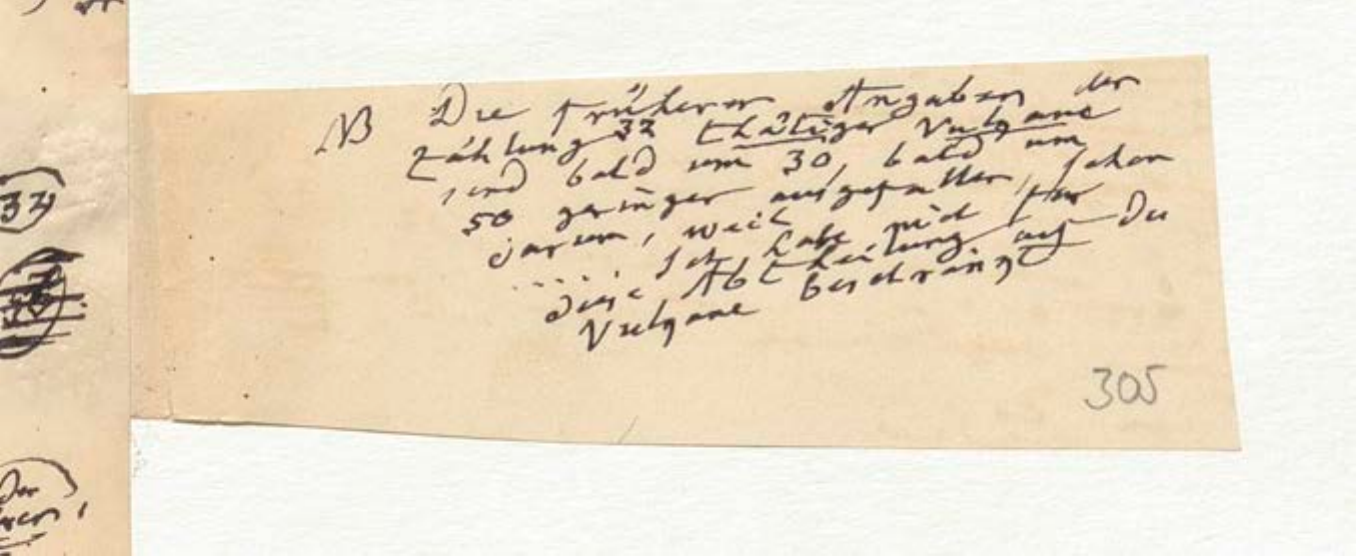 NB Die früheren Angaben der
Zählung 32 thätiger Vulgane
sind bald um 30, bald um
50 geringer ausgefallen, schon
darum, weil
..... Ich habe mich für
diese Abtheilung auf die
Vulgane beschrängt
305
32
Der